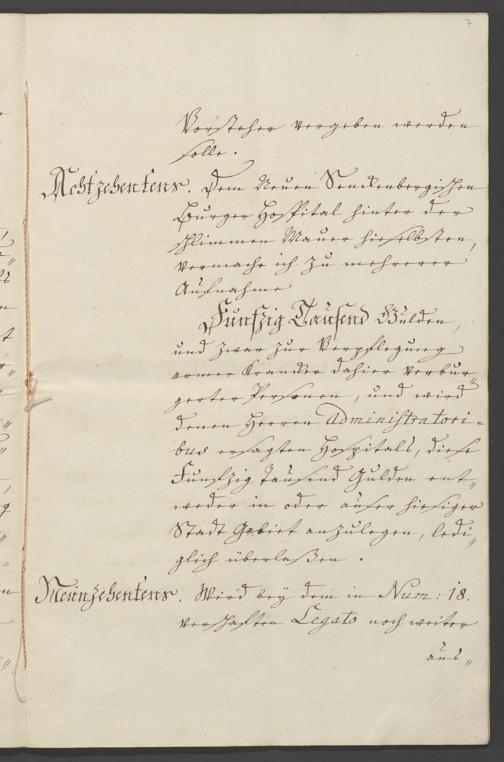 7
Vorsteher vergeben werden
solle.
Achtzehentens. Dem Neuen Senckenbergischen
Burger Hospital hinter der
schlimmen Mauer hieselbsten,
vermache ich zu mehrerer
Aufnahme
Funfzig Tausend Gulden,
und zwar zur Verpflegung
armer Krancker dahier verbur„
gerter Personen, und wird
denen Herren Administratori=
bus ersagten Hospitals, diese
Funfzig Tausend Gulden ent„
weder in oder auser hiesiger
Stadt Gebiet anzulegen, ledi„
glich überlaßen.
Neunzehentens. Wird bey dem in Num: 18.
Legato noch weiter
aus„